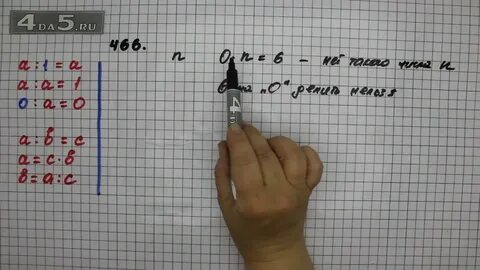 4DA5.RU
466.
n 0 n = 6 – нет такого числа n
на „0“ делить нельзя
a : 1 = a
a : a = 1
0 : a = 0
a : b = c
a = c · b
b = a : c